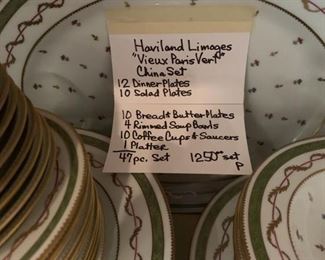 Haviland Limages
"Vieux Paris Vert"
China Set
12 Dinner Plates
10 Salad Plates
10 Bread & Butter Plates
4 Rimmed Soup Bowls
10 Coffee Cups & Saucers
1 Platter
47 pc. Set 1250 set
P